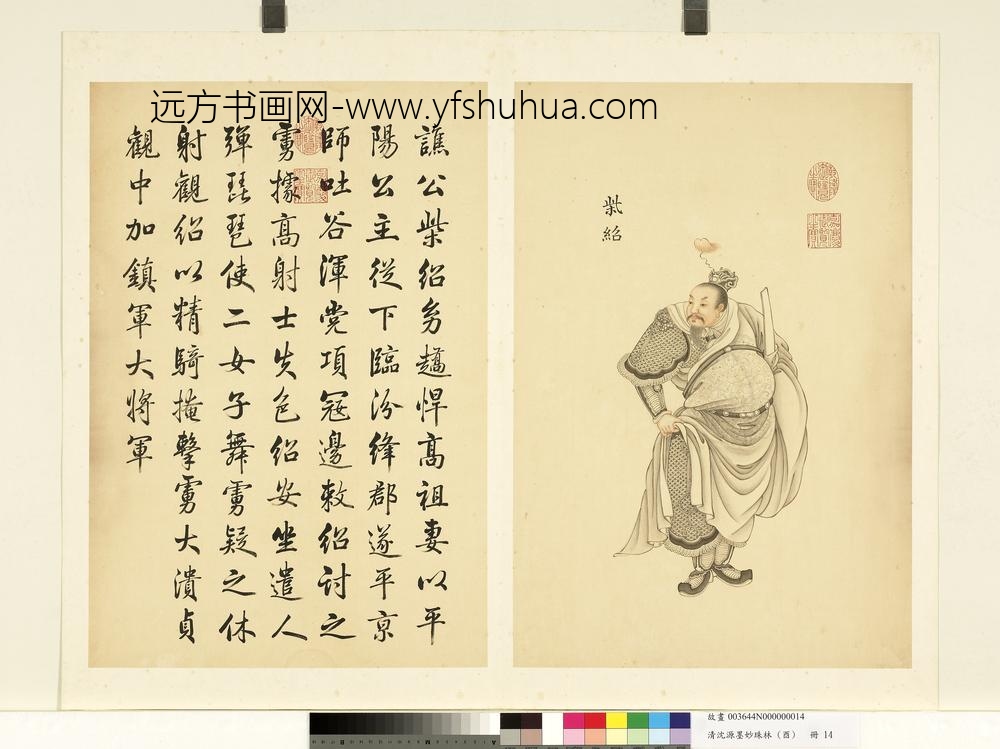 远方书画网-www.yfshuhua.com
柴紹
譙公柴紹幼趫悍高祖妻以平
陽公主從下臨汾絳郡遂平京
師吐谷渾党項冦邊敕紹討之
虜據高射士失色紹安坐遣人
彈琵琶使二女子舞虜疑之休
射觀紹以精騎掩擊虜大潰貞
觀中加鎮軍大將軍
故畫 003644N000000014
清沈源墨妙珠林（酉） 冊 14